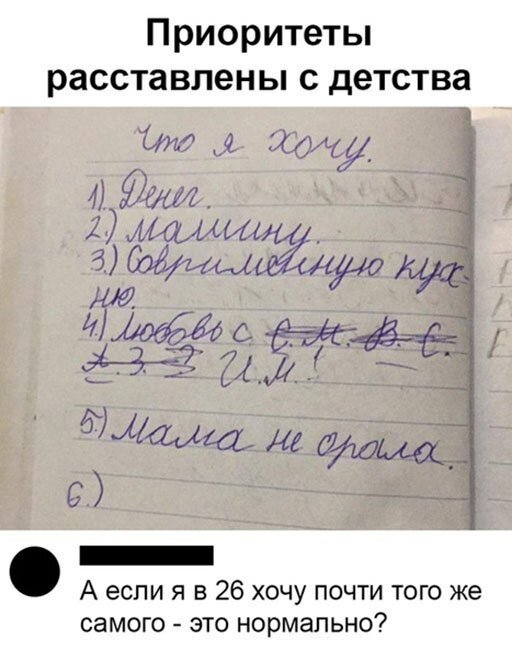 Приоритеты
расставлены с детства
Что я хочу.
1) Денег.
2) машину.
3) Савримменную кух-
ню.
4) Любовь с С. М. В. С.
А. З. И.М!
5) Мама не орала.
6.)
А если я в 26 хочу почти того же
самого - это нормально?